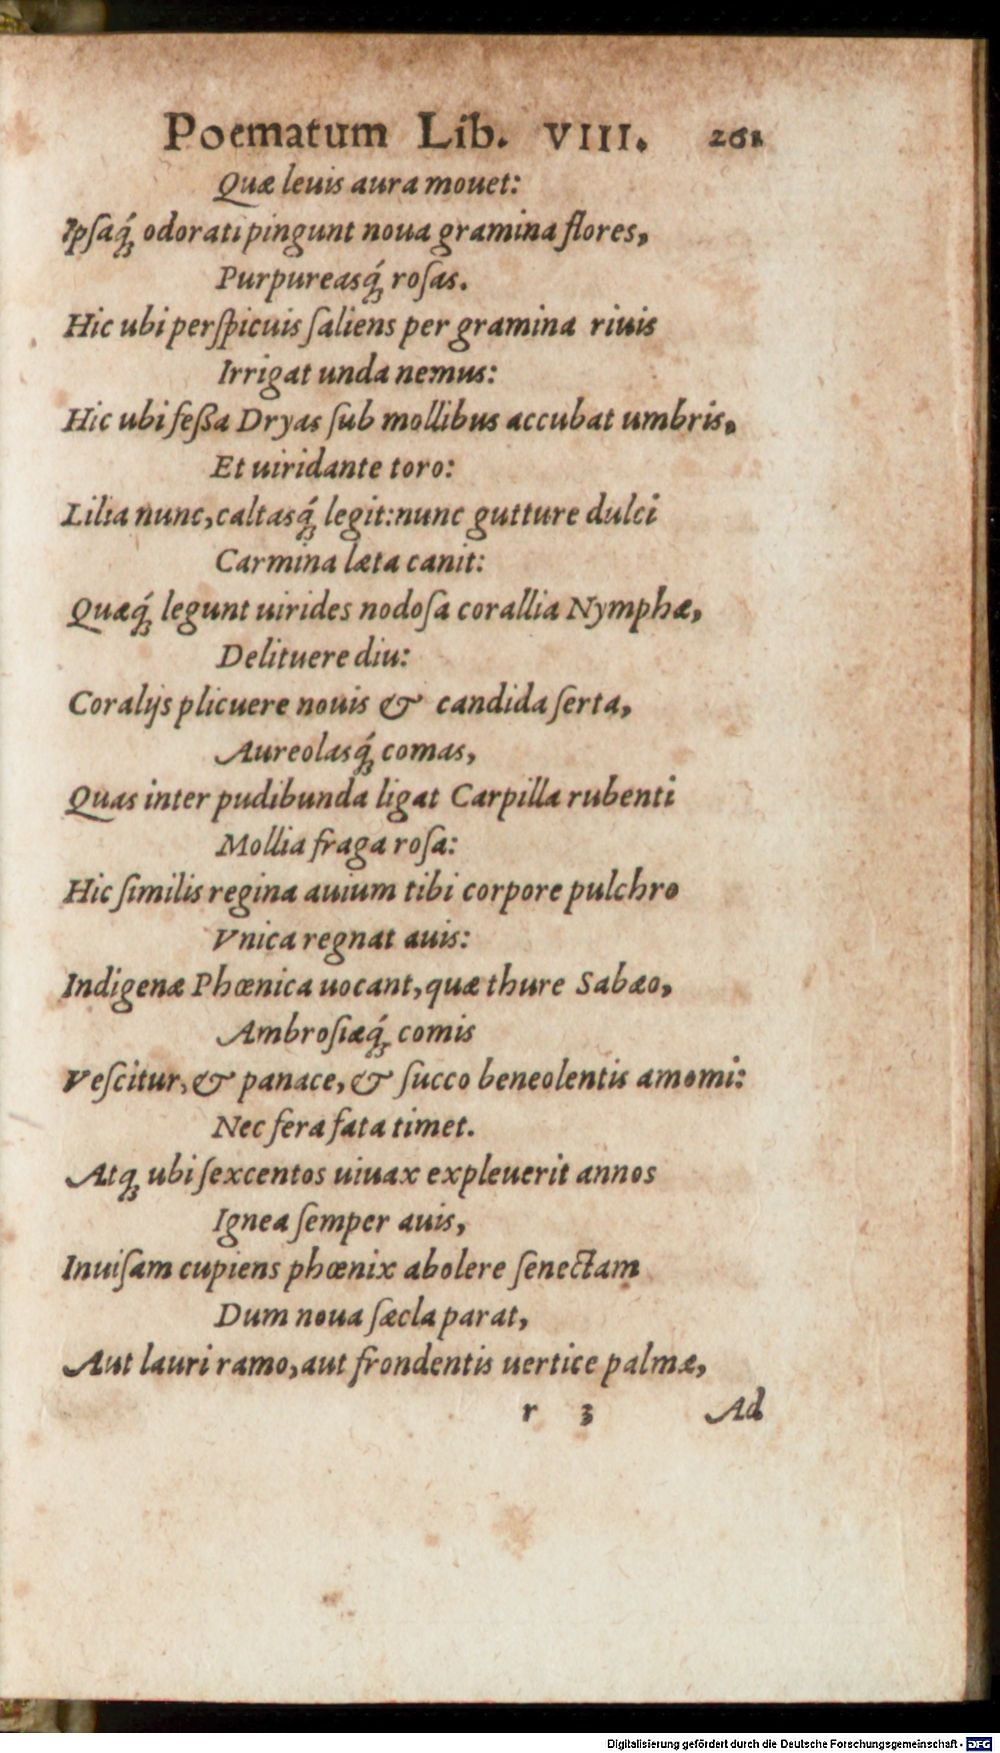 Poematum Lib. VIII. 261
Quæ leuis aura mouet:
Ipſaq́; odorati pingunt noua gramina flores,
Purpureasq́; roſas.
Hic ubi perſpicuis ſaliens per gramina riuis
Irrigat unda nemus:
Hic ubi feſſa Dryas ſub mollibus accubat umbris,
Et uiridante toro:
Lilia nunc, caltasq́; legit: nunc gutture dulci
Carmina læta canit:
Quæq́; legunt uirides nodoſa corallia Nymphæ,
Delituere diu:
Coralijs plicuere nouis & candida ſerta,
Aureolasq́; comas,
Quas inter pudibunda ligat Carpilla rubenti
Mollia fraga roſa:
Hic ſimilis regina auium tibi corpore pulchro
Vnica regnat auis:
Indigenæ Phœnica uocant, quæ thure Sabæo,
Ambroſiæq́; comis
Veſcitur, & panace, & ſucco beneolentis amomi:
Nec fera fata timet.
Atq; ubi ſexcentos uiuax expleuerit annos
Ignea ſemper auis,
Inuiſam cupiens phœnix abolere ſenectam
Dum noua ſæcla parat,
Aut lauri ramo, aut frondentis uertice palmæ,
r 3 Ad
Digitalisierung gefördert durch die Deutsche Forschungsgemeinschaft - DFG